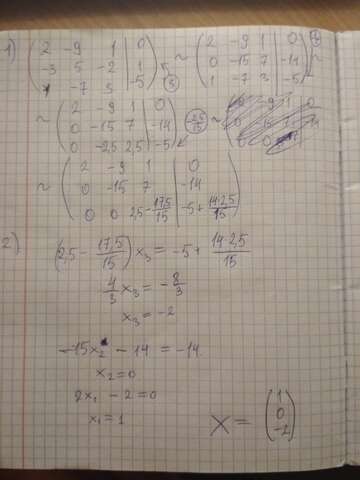 1) ( 2 -9 1 | 0 ; -3 5 -2 | 1 ; 1 -7 3 | -5 ) ~ ( 2 -9 1 | 0 ; 0 -15 7 | -14 ; 1 -7 3 | -5 ) ~
~ ( 2 -9 1 | 0 ; 0 -15 7 | -14 ; 0 -2,5 2,5 | -5 ) ~
~ ( 2 -9 1 | 0 ; 0 -15 7 | -14 ; 0 0 2,5 - 17,5/15 | -5 + 14·2,5/15 )
2) (2,5 - 17,5/15) x₃ = -5 + 14·2,5/15
4/3 x₃ = -8/3
x₃ = -2
-15x₂ - 14 = -14.
x₂ = 0
2x₁ - 2 = 0
x₁ = 1
X = ( 1 ; 0 ; -2 )